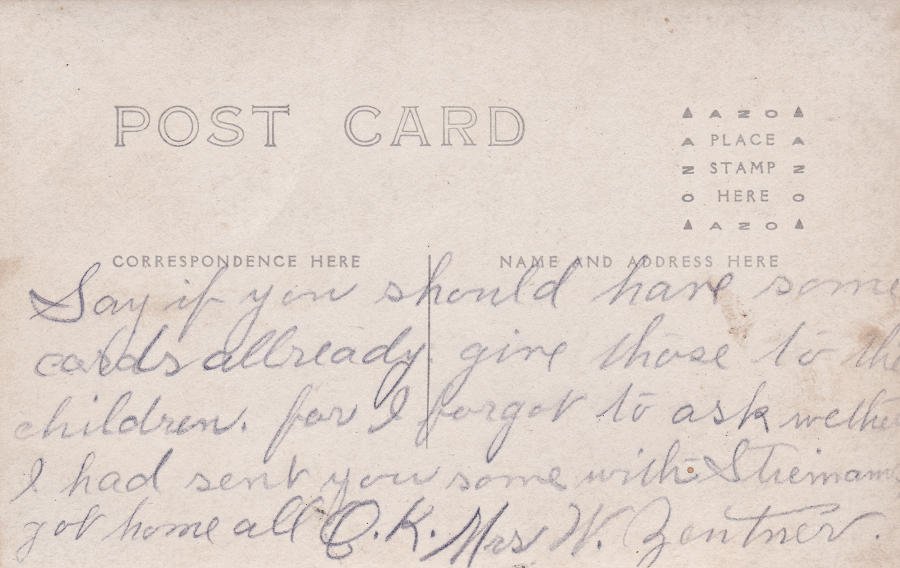 POST CARD
AZO
A PLACE A
N STAMP N
O HERE O
AZO
CORRESPONDENCE HERE
NAME AND ADDRESS HERE
Say if you should have some
cards allready give those to the
children. for I forgot to ask wether
I had sent you some with
got home all O.K. Mrs W. Zentner.